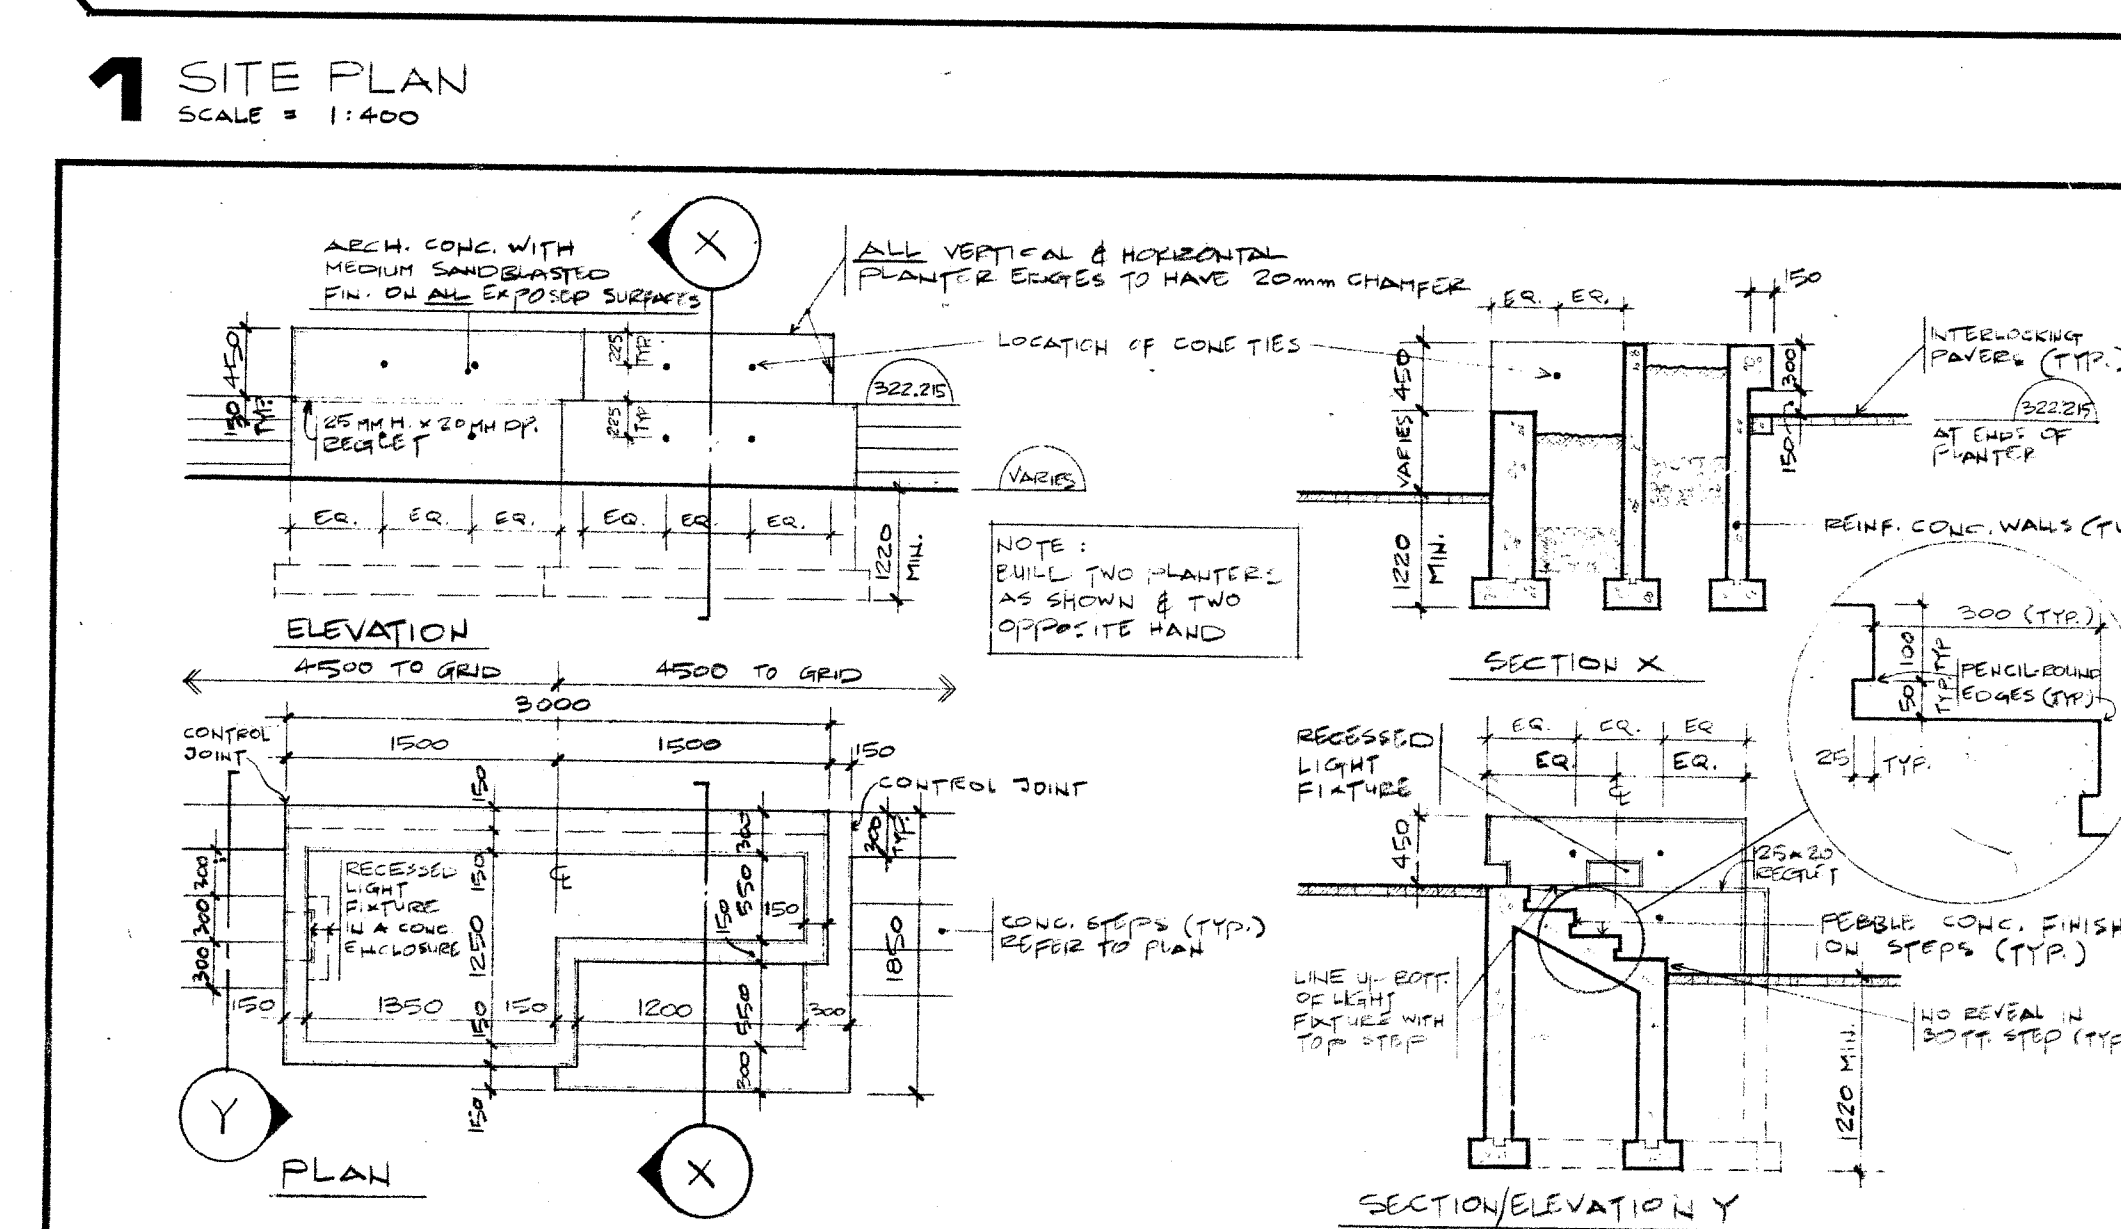 1 SITE PLAN
SCALE = 1:400
ARCH. CONC. WITH
MEDIUM SANDBLASTED
FIN. ON ALL EXPOSED SURFACES
X
ALL VERTICAL & HORIZONTAL
PLANTER EDGES TO HAVE 20mm CHAMFER
LOCATION OF CONE TIES
450
150
TYP.
225
TYP.
225
TYP
25 MM H. x 20 MM DP.
REGLET
322.215
VARIES
EQ. EQ. EQ. EQ. EQ. EQ.
1220
MIN.
NOTE :
BUILD TWO PLANTERS
AS SHOWN & TWO
OPPOSITE HAND
ELEVATION
EQ. EQ.
150
450
VARIES
1220
MIN.
300
150
INTERLOCKING
PAVERS (TYP.)
322.215
AT ENDS OF
PLANTER
REINF. CONC. WALLS
SECTION X
300 (TYP.)
100
TYP
50
TYP.
PENCIL-ROUND
EDGES (TYP.)
25 TYP.
4500 TO GRID 4500 TO GRID
3000
1500 1500 150
CONTROL
JOINT
CONTROL JOINT
150
150
1250
150
150
300
550
150
550
300
150
300
TYP.
1850
300
300
300
RECESSED
LIGHT
FIXTURE
IN A CONC.
ENCLOSURE
℄
150 1350 150 1200 300
CONC. STEPS (TYP.)
REFER TO PLAN
Y
X
PLAN
RECESSED
LIGHT
FIXTURE
EQ. EQ. EQ
EQ. EQ.
℄
450
25 x 20
REGLET
PEBBLE CONC. FINISH
ON STEPS (TYP.)
LINE UP BOTT.
OF LIGHT
FIXTURE WITH
TOP STEP
NO REVEAL IN
BOTT. STEP
1220 MIN.
SECTION/ELEVATION Y